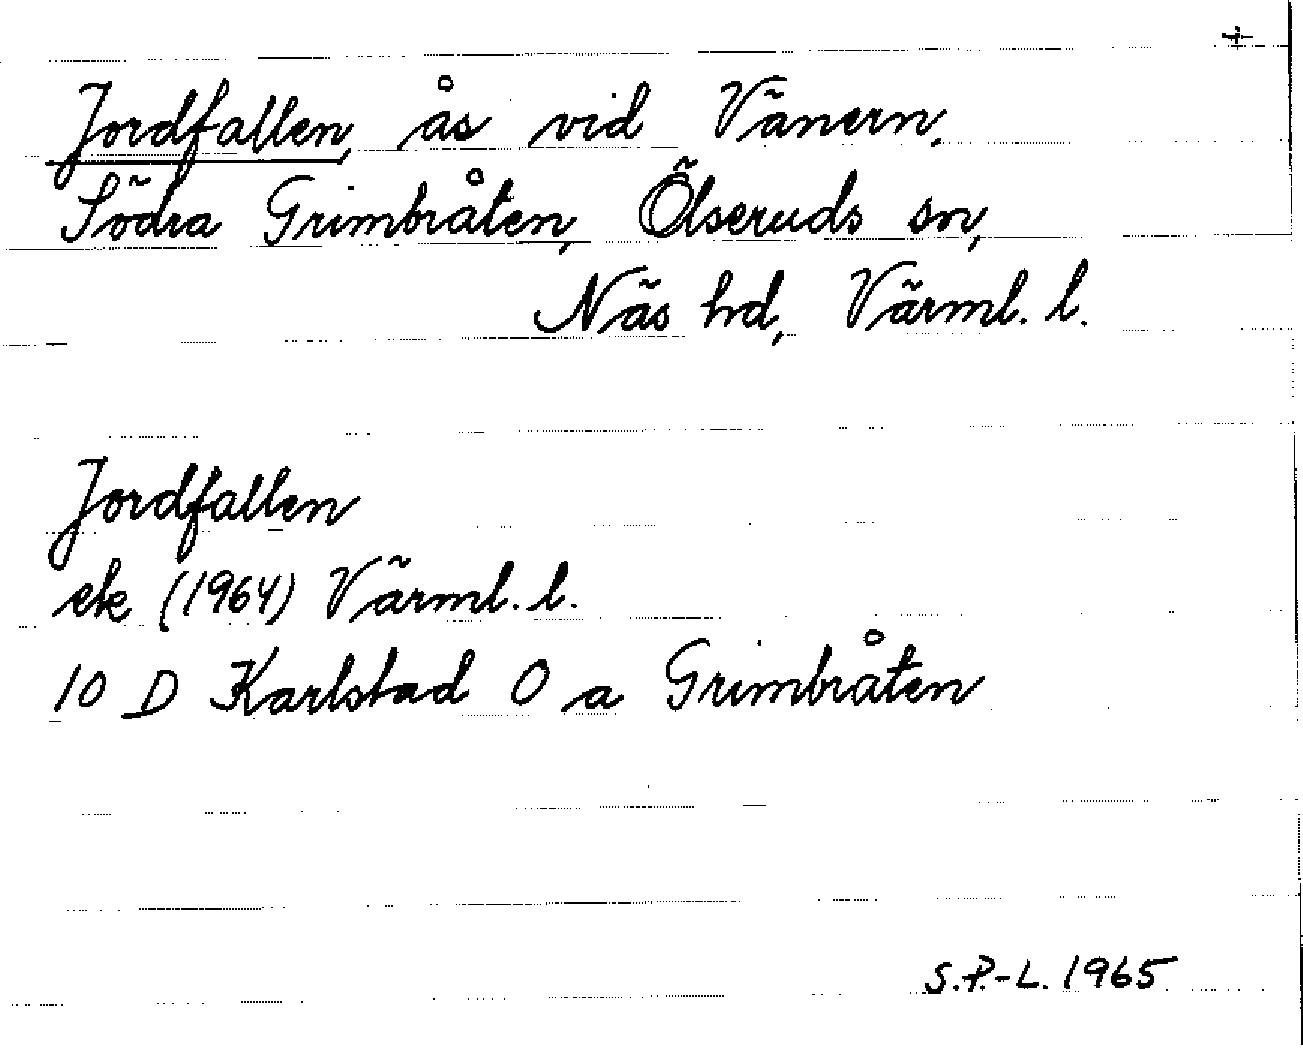 +
Jordfallen, ås vid Vänern,
Södra Grimbråten, Ölseruds sn,
Näs hd, Värml. l.
Jordfallen
ek (1964) Värml. l.
10 D Karlstad 0 a Grimbråten
S.P.-L. 1965